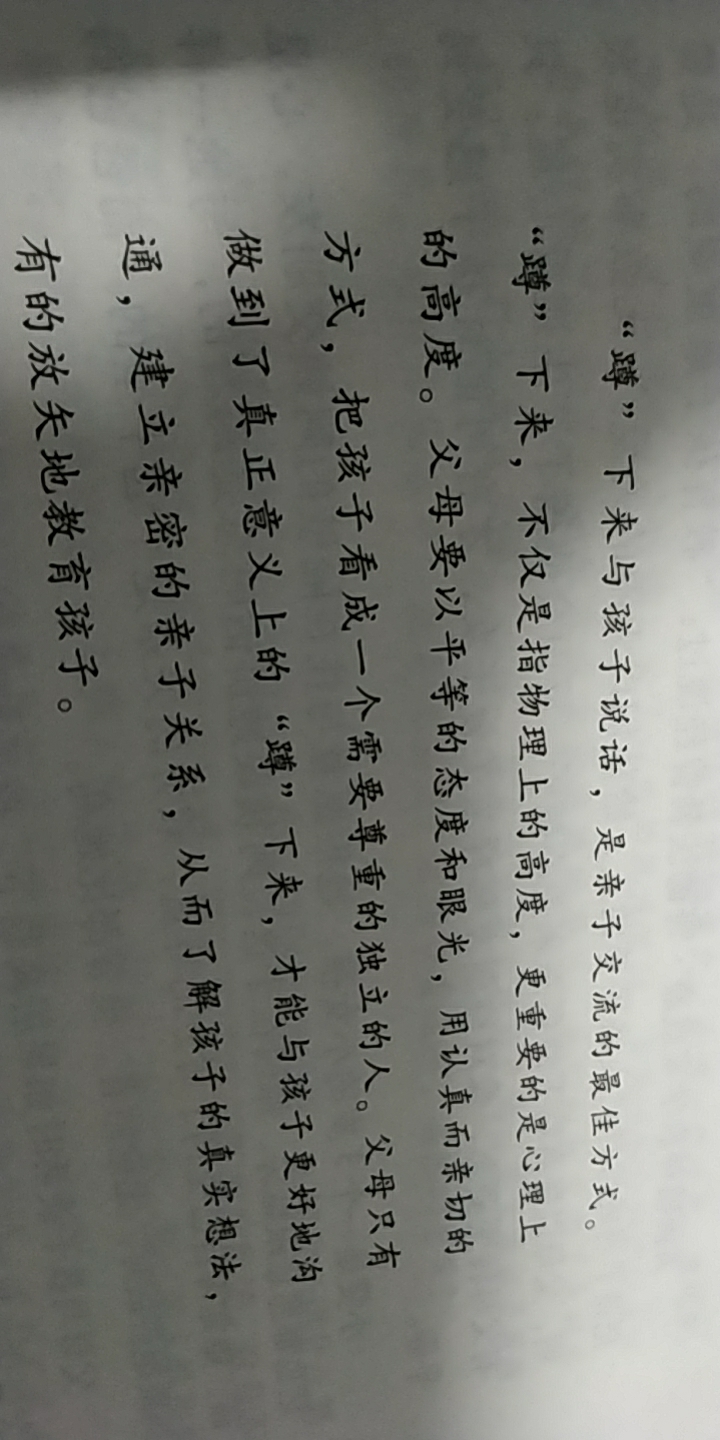 “蹲”下来与孩子说话，是亲子交流的最佳方式。
“蹲”下来，不仅是指物理上的高度，更重要的是心理上
的高度。父母要以平等的态度和眼光，用认真而亲切的
方式，把孩子看成一个需要尊重的独立的人。父母只有
做到了真正意义上的“蹲”下来，才能与孩子更好地沟
通，建立亲密的亲子关系，从而了解孩子的真实想法，
有的放矢地教育孩子。